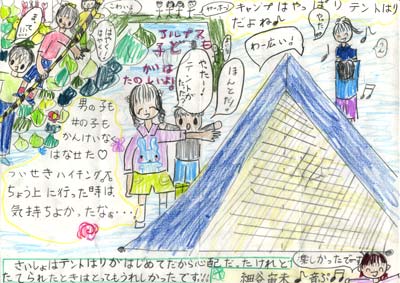 こわいよ
ヤッホー
キャンプはやっぱり テントはり
だよね♪
やったー
アルプス
子ども
かいは
たのしいよ。
やったー！
テントだ
ほんとだ！
わー広い。
まって
男の子も
女の子も
かんけいなく
はなせた♡
ついせきハイキング。
ちょう上に行った時は
気持ちよかったなぁ・・・
さいしょはテントはりがはじめてだから心配だったけれど
たてられたときはとってもうれしかったです!!
楽しかったでーす
細谷